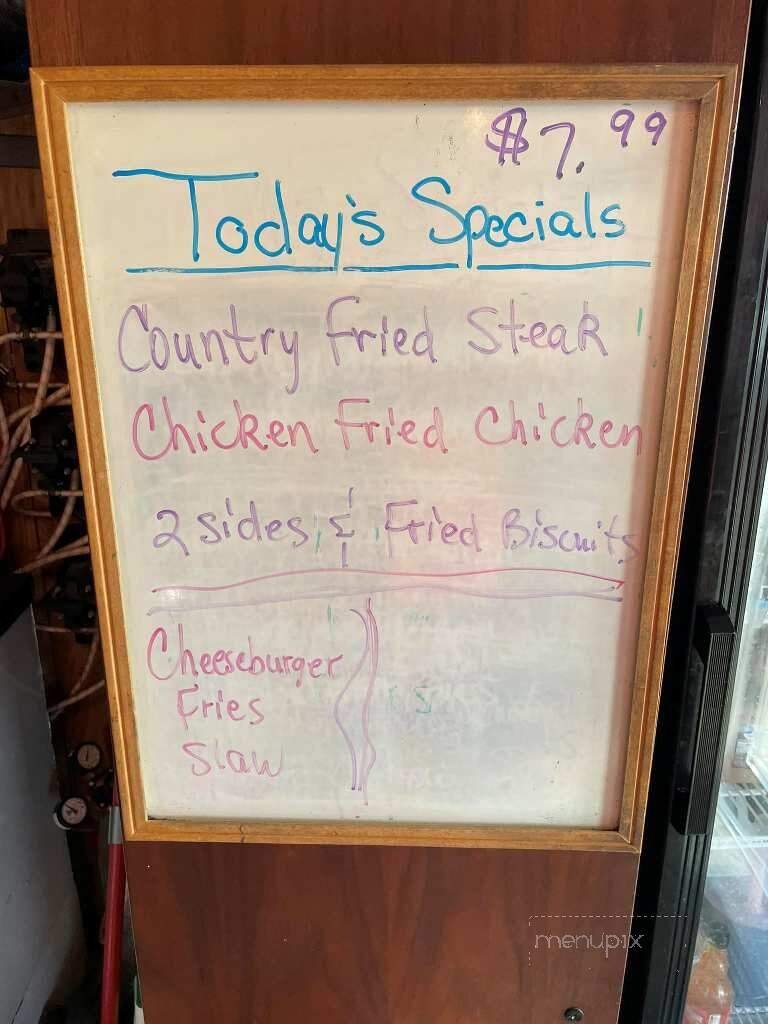 $7.99
Today's Specials
Country Fried Steak
Chicken Fried Chicken
2 sides & Fried Biscuits
Cheeseburger
Fries
Slaw
menupix